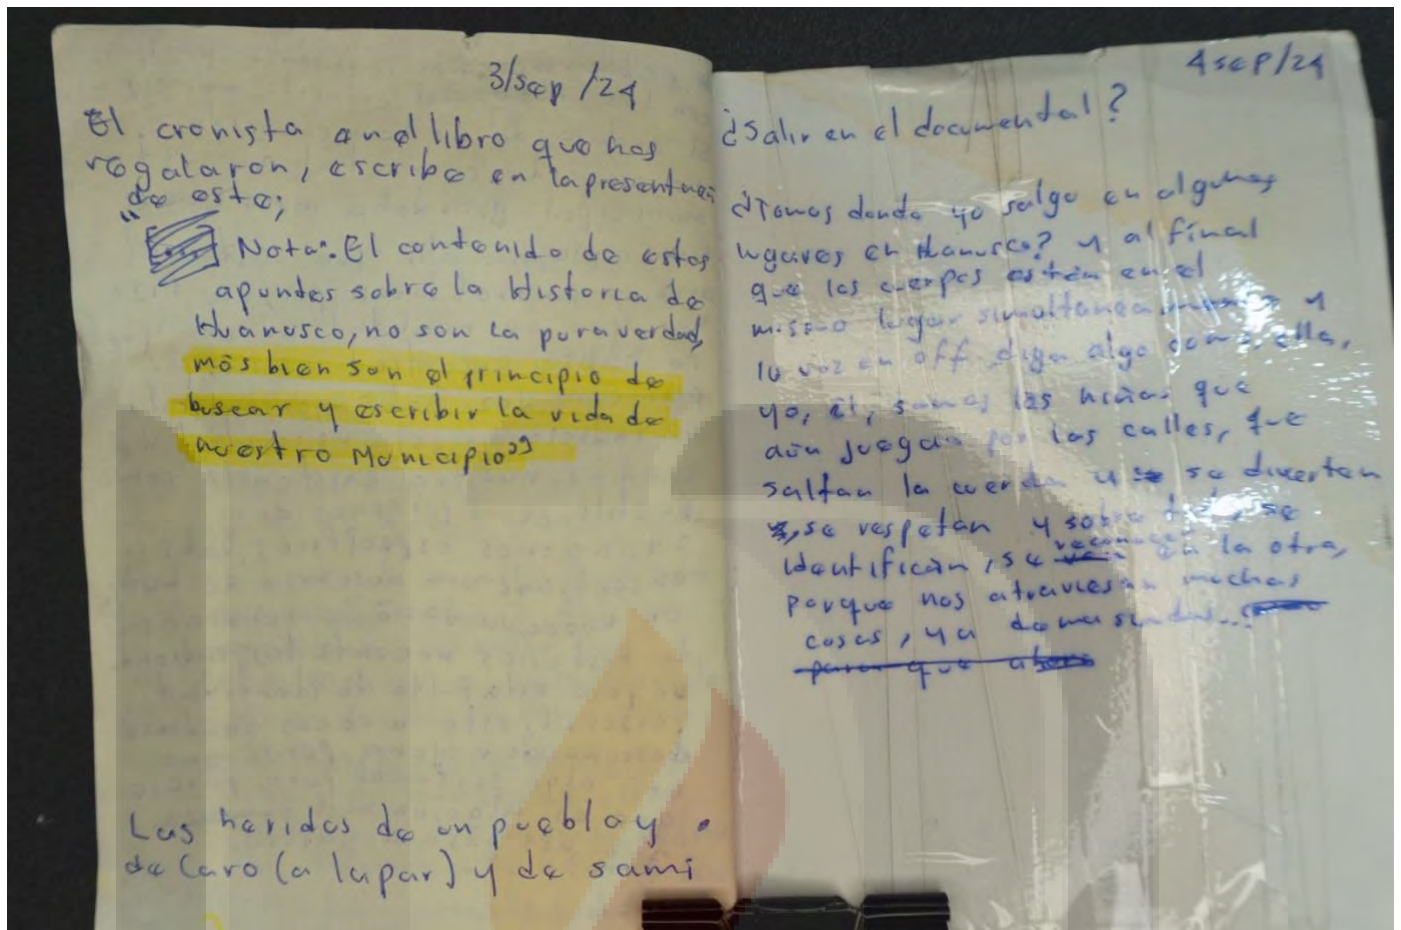 3/sep/24
El cronista en el libro que nos
regalaron, escribe en la presentación
de este;
" Nota: El contenido de estos
apuntes sobre la Historia de
Huanusco, no son la pura verdad,
más bien son el principio de
buscar y escribir la vida de
nuestro Municipio"
Las heridas de un pueblo y
de Caro (a la par) y de sami
4 sep/24
¿Salir en el documental?
¿Tomas donde yo salgo en algunos
lugares en Huanusco? y al final
que los cuerpos estén en el
mismo lugar simultaneamente y
la voz en off diga algo como, ella,
yo, él, somos las niñas que
aún juegan por las calles, que
saltan la cuerda y se divierten
, se respetan y sobre todo, se
identifican, se reconocen en la otra,
porque nos atraviesan muchas
cosas, ya demasiadas...